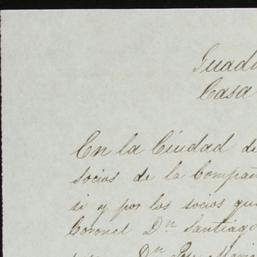 Guada
Casa
En la Ciudad de
socios de la Compañ
si y por los socios qu
Coronel Dn Santiago
Dn